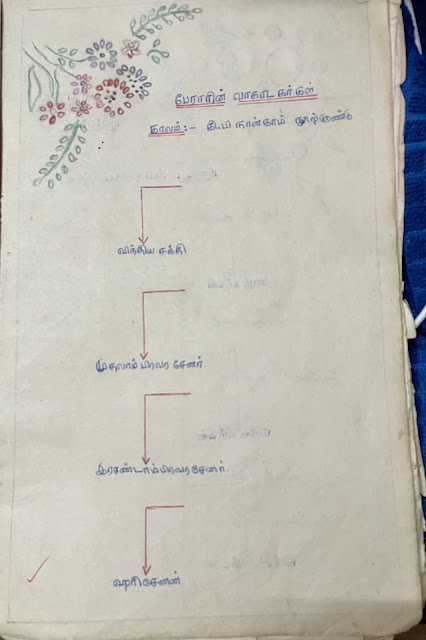 பேராரின் வாகாடகர்கள்
காலம்:- கி.பி நான்காம் நூற்றாண்டு
விந்திய சக்தி
முதலாம் பிரவர சேனர்
இரண்டாம் பிரவர சேனர்.
ஹரி சேனன்